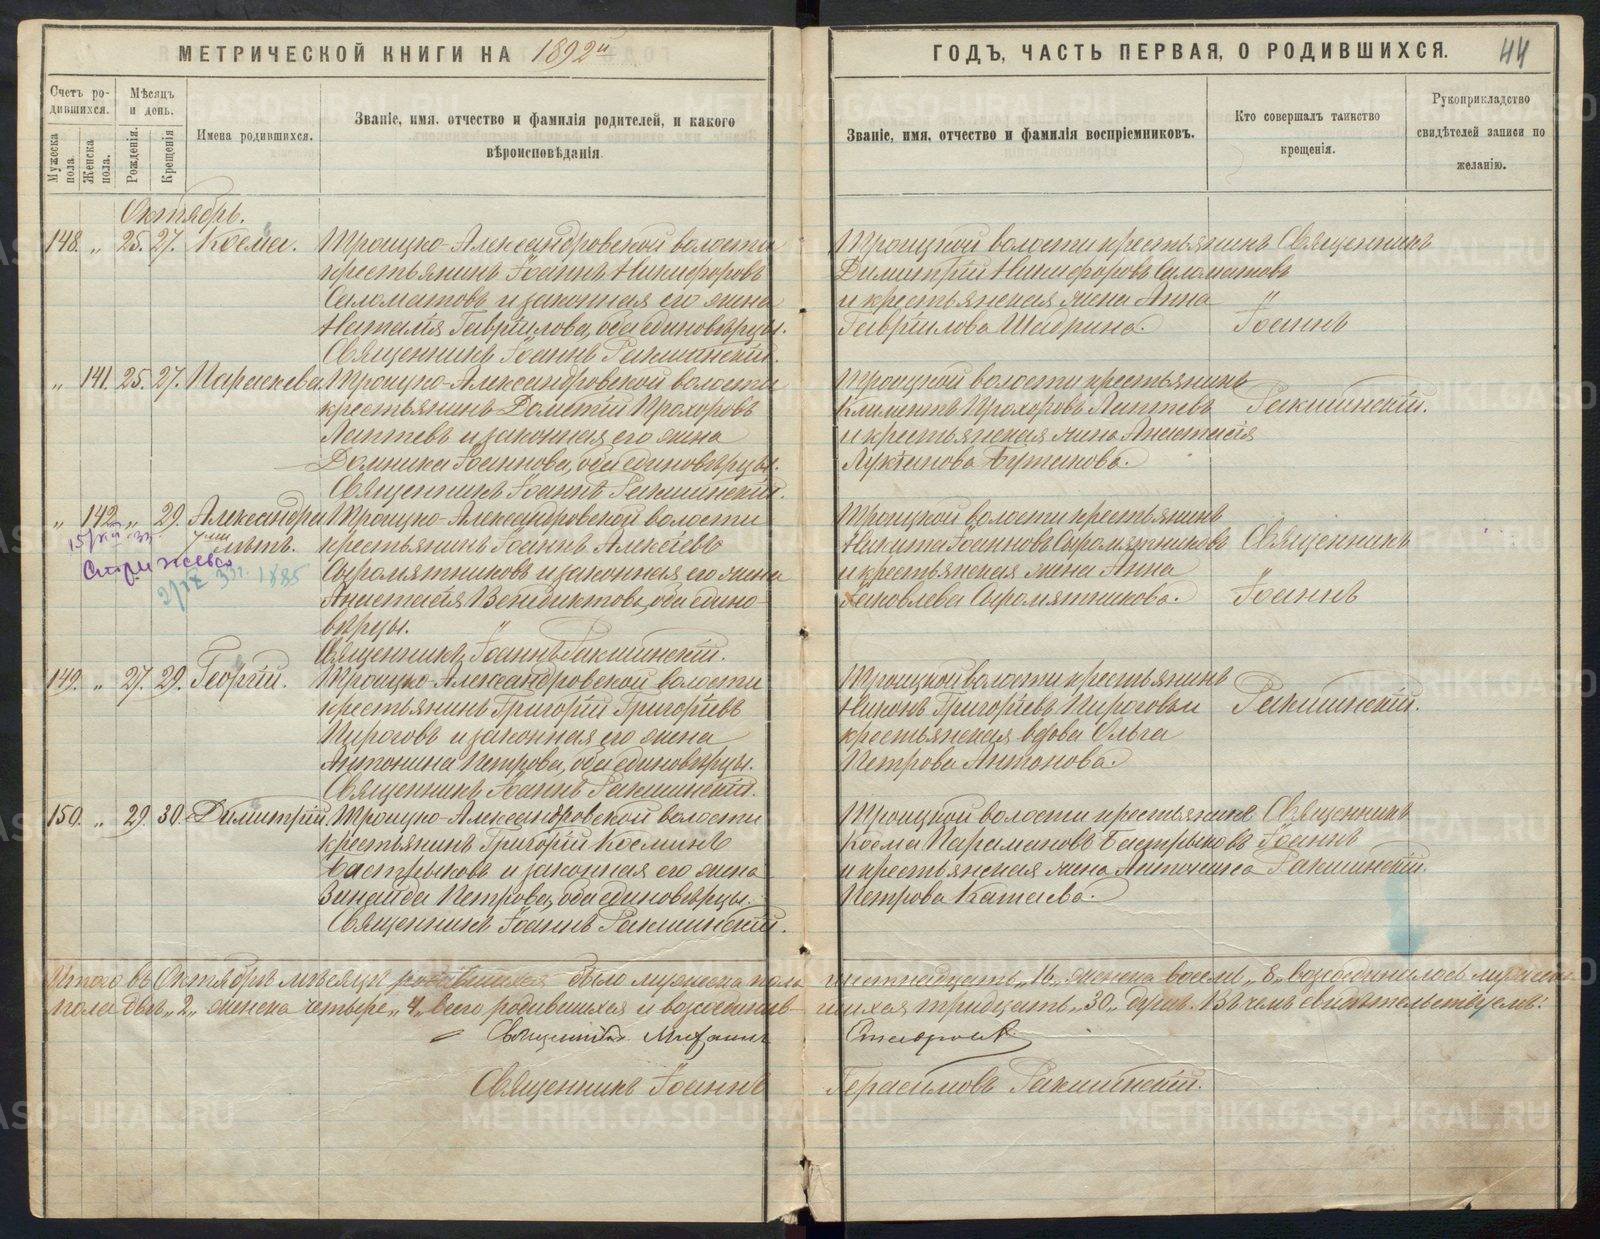 МЕТРИЧЕСКОЙ КНИГИ НА 1892й
ГОДЪ, ЧАСТЬ ПЕРВАЯ, О РОДИВШИХСЯ.
44
Счетъ ро-
дившихся.
Мужеска пола.
Женска пола.
Мѣсяцъ
и день.
Рожденія.
Крещенія
Имена родившихся.
Званіе, имя, отчество и фамилія родителей, и какого
вѣроисповѣданія
Званіе, имя, отчество и фамилія воспріемниковъ.
Кто совершалъ таинство
крещенія.
Рукоприкладство
свидѣтелей записи по
желанію.
Октябрь.
148. „ 25. 27. Косма.
Троицко-Александровской волости
крестьянинъ Іоаннъ Никифоровъ
Саломатовъ и законная его жена
Наталія Гавріилова, оба единовѣрцы.
Священникъ Іоаннъ Ракшинскій.
Троицкой волости крестьянинъ
Димитрій Никифоровъ Саломатовъ
и крестьянская жена Анна
Гавріилова Шадрина.
Священникъ
Іоаннъ
„ 141. 25. 27. Параскева
Троицко-Александровской волости
крестьянинъ Дометій Прохоровъ
Лаптевъ и законная его жена
Домника Іоаннова, оба единовѣрцы.
Священникъ Іоаннъ Ракшинскій.
Троицкой волости крестьянинъ
Климентъ Прохоровъ Лаптевъ
и крестьянская жена Анастасія
Лукіанова Бутакова.
Ракшинскій.
„ 142. „ 29. Александра
7ми лѣтъ.
Троицко-Александровской волости
крестьянинъ Іоаннъ Алексѣевъ
Сыромятниковъ и законная его жена
Анастасія Венедиктова, оба едино-
вѣрцы.
Священникъ Іоаннъ Ракшинскій.
Троицкой волости крестьянинъ
Никита Іоанновъ Сыромятниковъ
и крестьянская жена Анна
Іаковлева Сыромятникова.
Священникъ
Іоаннъ
1885
149. „ 27. 29. Георгій.
Троицко-Александровской волости
крестьянинъ Григорій Григоріевъ
Пироговъ и законная его жена
Антонина Петрова, оба единовѣрцы.
Священникъ Іоаннъ Ракшинскій.
Троицкой волости крестьянинъ
Никонъ Григоріевъ Пироговъ и
крестьянская вдова Ольга
Петрова Антонова.
Ракшинскій.
150. „ 29. 30. Димитрій.
Троицко-Александровской волости
крестьянинъ Григорій Косминъ
Бастрыковъ и законная его жена
Зинаида Петрова, оба единовѣрцы.
Священникъ Іоаннъ Ракшинскій.
Троицкой волости крестьянинъ
Косма Парамоновъ Бастрыковъ
и крестьянская жена Антонина
Петрова Катаева.
Священникъ
Іоаннъ
Ракшинскій.
Итого въ Октябрѣ мѣсяцѣ родившихся было мужеска пола шестнадцать „16„ женска восемь „8„ возсоединилось мужеска
пола два „2„ женска четыре „4„ всего родившихся и возсоединив-шихся тридцать „30„ душъ. Въ чемъ свидѣтельствуемъ:
Священникъ Михаилъ
Священникъ Іоаннъ Герасимовъ Ракшинскій.
METRIKI.GASO-URAL.RU